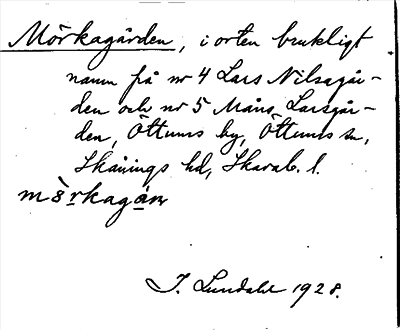 Mörkagården, i orten brukligt
namn på nr 4 Lars Nilsagår-
den och nr 5 Måns Larsgår-
den, Öttums by, Öttums sn,
Skånings hd, Skarab. l.
mörkagån
J. Lundahl 1928.